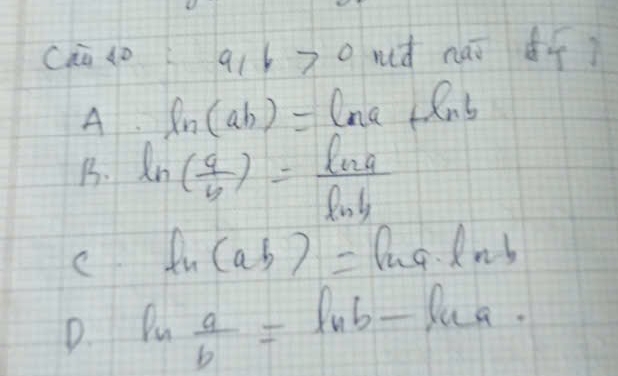 Câu 40 : a, b > 0 mđ nào
A. ln(ab) = lna + lnb
B. ln(a/b) = lna/lnb
C. ln(ab) = lna.lnb
D. ln a/b = lnb - lna.